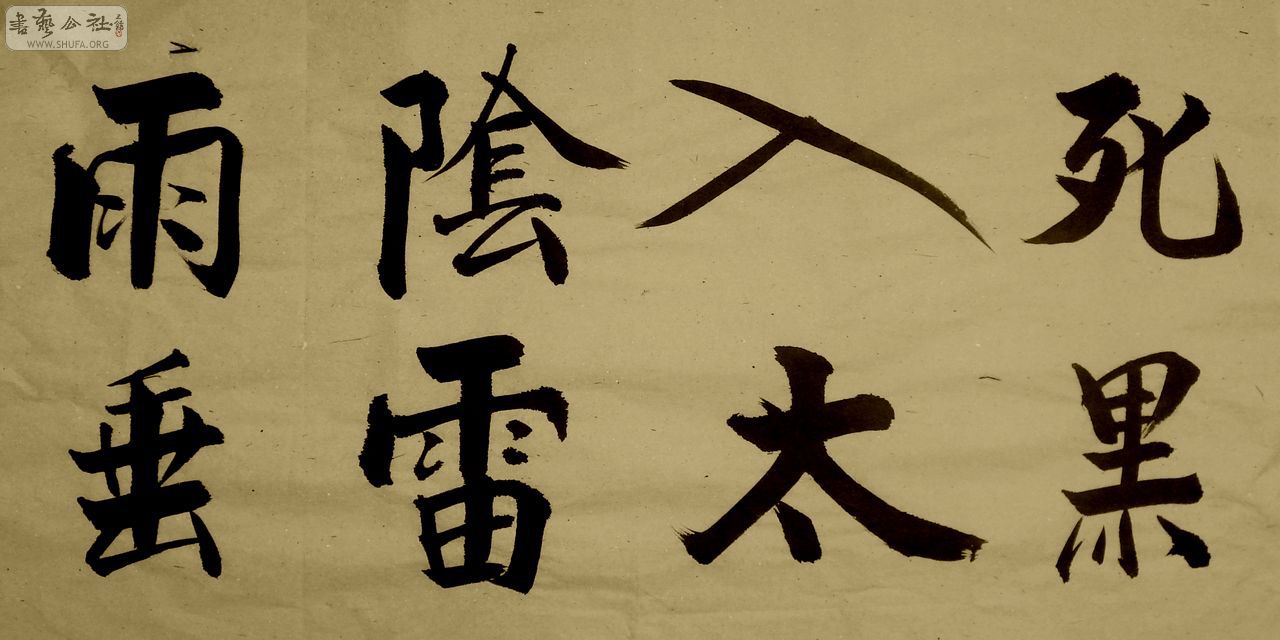 死黑
入太
陰雷
雨垂
書藝公社
WWW.SHUFA.ORG